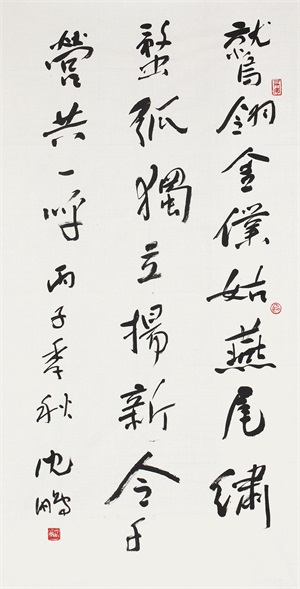 鷲翎金僕姑燕尾繡
蝥弧獨立揚新令千
營共一呼丙子季秋沈鵬